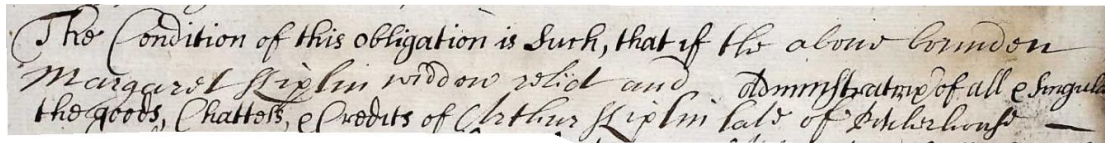 The Condition of this obligation is Such, that if the above bounden
Margaret Kiplin widdow relict and Administratrix of all & Singular
the goods, Chattels, & Credits of Arthur Kiplin late of